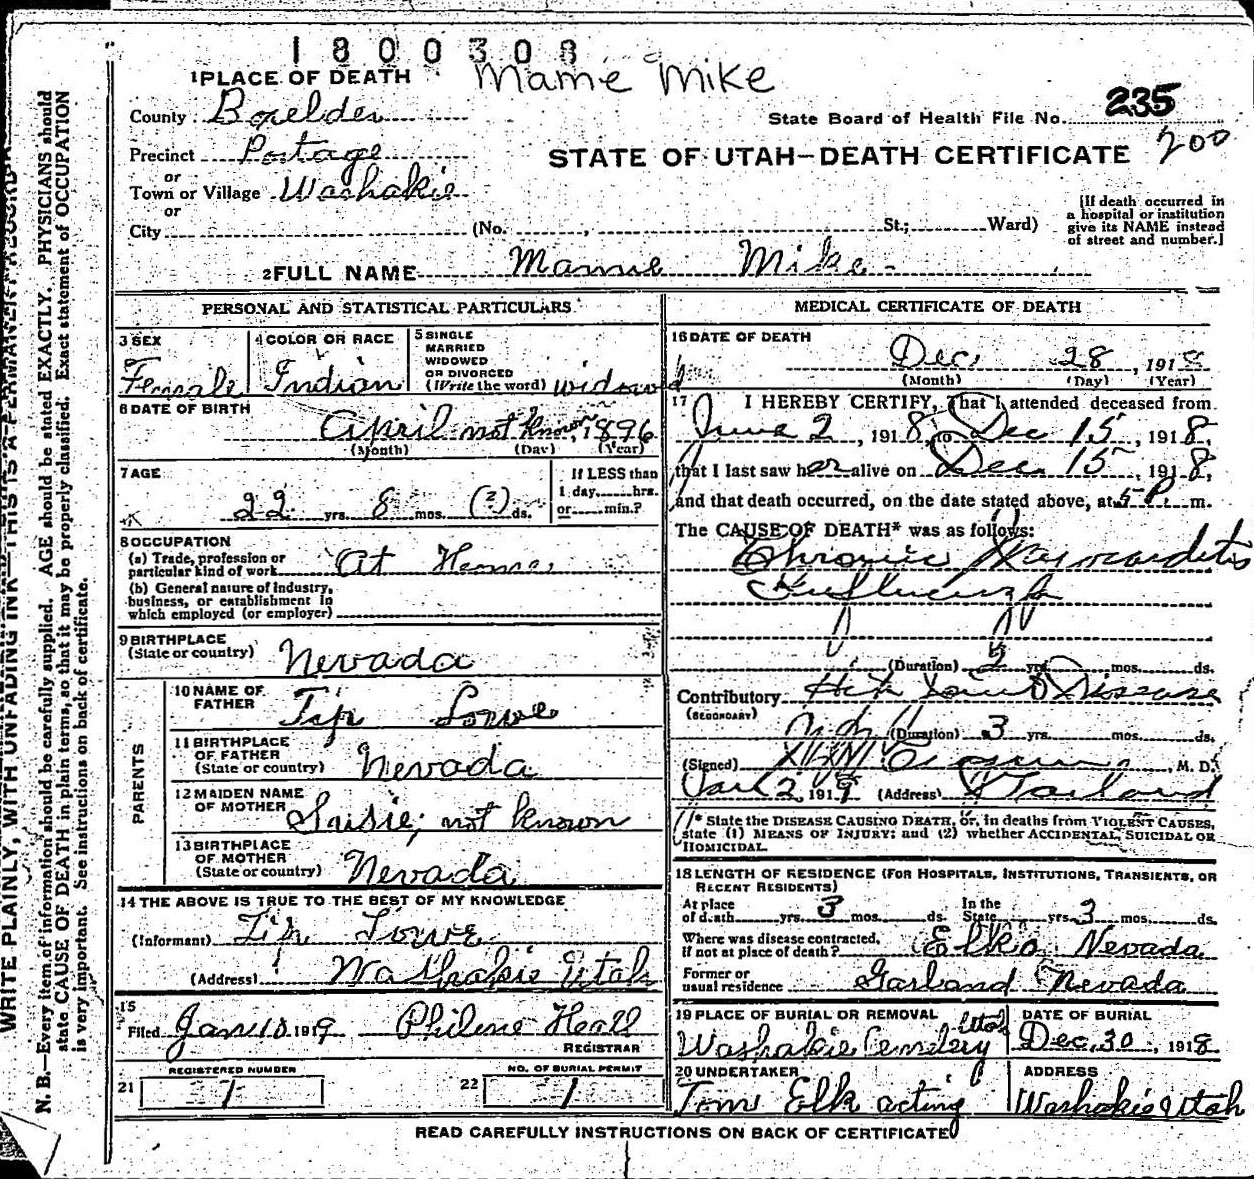 1800308
1 PLACE OF DEATH Mamie Mike
County Boxelder
State Board of Health File No. 235
Precinct Portage
STATE OF UTAH—DEATH CERTIFICATE 200
or
Town or Village Washakie
or
City (No. , St.; Ward)
[If death occurred in a hospital or institution give its NAME instead of street and number.]
2 FULL NAME Mamie Mike
PERSONAL AND STATISTICAL PARTICULARS
3 SEX Female
4 COLOR OR RACE Indian
5 SINGLE MARRIED WIDOWED OR DIVORCED (Write the word) widowed
6 DATE OF BIRTH
April not known, 1896
(Month) (Day) (Year)
7 AGE
22 yrs. 8 mos. (?) ds.
If LESS than 1 day, hrs. or min.?
8 OCCUPATION
(a) Trade, profession or particular kind of work At Home
(b) General nature of industry, business, or establishment in which employed (or employer)
9 BIRTHPLACE
(State or country) Nevada
PARENTS
10 NAME OF FATHER Tip
11 BIRTHPLACE OF FATHER (State or country) Nevada
12 MAIDEN NAME OF MOTHER Susie, not known
13 BIRTHPLACE OF MOTHER (State or country) Nevada
14 THE ABOVE IS TRUE TO THE BEST OF MY KNOWLEDGE
(Informant) Tip
(Address) Washakie Utah
15
Filed Jan 10 1919 Philene Heall
REGISTRAR
21 REGISTERED NUMBER 1
22 NO. OF BURIAL PERMIT 1
MEDICAL CERTIFICATE OF DEATH
16 DATE OF DEATH
Dec. 28, 1918
(Month) (Day) (Year)
17 I HEREBY CERTIFY, That I attended deceased from
June 2, 1918, to Dec 15, 1918,
that I last saw her alive on Dec. 15, 1918,
and that death occurred, on the date stated above, at 5 P. m.
The CAUSE OF DEATH* was as follows:
Chronic Myocarditis
Influenza
(Duration) 2 yrs. mos. ds.
Contributory Hip Joint Disease
(SECONDARY)
(Duration) 3 yrs. mos. ds.
(Signed) , M. D.
Jan 2, 1919 (Address) Garland
* State the DISEASE CAUSING DEATH, or, in deaths from VIOLENT CAUSES, state (1) MEANS OF INJURY; and (2) whether ACCIDENTAL, SUICIDAL OR HOMICIDAL.
18 LENGTH OF RESIDENCE (FOR HOSPITALS, INSTITUTIONS, TRANSIENTS, OR RECENT RESIDENTS)
At place of death yrs. 3 mos. ds. In the State yrs. 3 mos. ds.
Where was disease contracted, if not at place of death? Elko Nevada
Former or usual residence Garland Nevada
19 PLACE OF BURIAL OR REMOVAL
Washakie Cemetery Utah
DATE OF BURIAL
Dec. 30, 1918
20 UNDERTAKER
Tom Elk acting
ADDRESS
Washakie Utah
READ CAREFULLY INSTRUCTIONS ON BACK OF CERTIFICATE
WRITE PLAINLY, WITH UNFADING INK—THIS IS A PERMANENT RECORD
N. B.—Every item of information should be carefully supplied. AGE should be stated EXACTLY. PHYSICIANS should
state CAUSE OF DEATH in plain terms, so that it may be properly classified. Exact statement of OCCUPATION
is very important. See instructions on back of certificate.